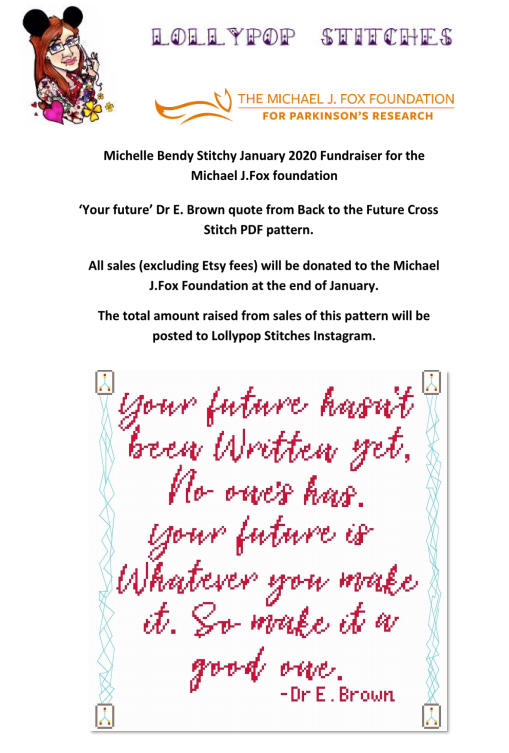 LOLLYPOP STITCHES
THE MICHAEL J. FOX FOUNDATION
FOR PARKINSON'S RESEARCH
Michelle Bendy Stitchy January 2020 Fundraiser for the
Michael J.Fox foundation
‘Your future’ Dr E. Brown quote from Back to the Future Cross
Stitch PDF pattern.
All sales (excluding Etsy fees) will be donated to the Michael
J.Fox Foundation at the end of January.
The total amount raised from sales of this pattern will be
posted to Lollypop Stitches Instagram.
Your future hasn't
been Written yet,
No one's has.
Your future is
Whatever you make
it. So make it a
good one.
-Dr E.Brown